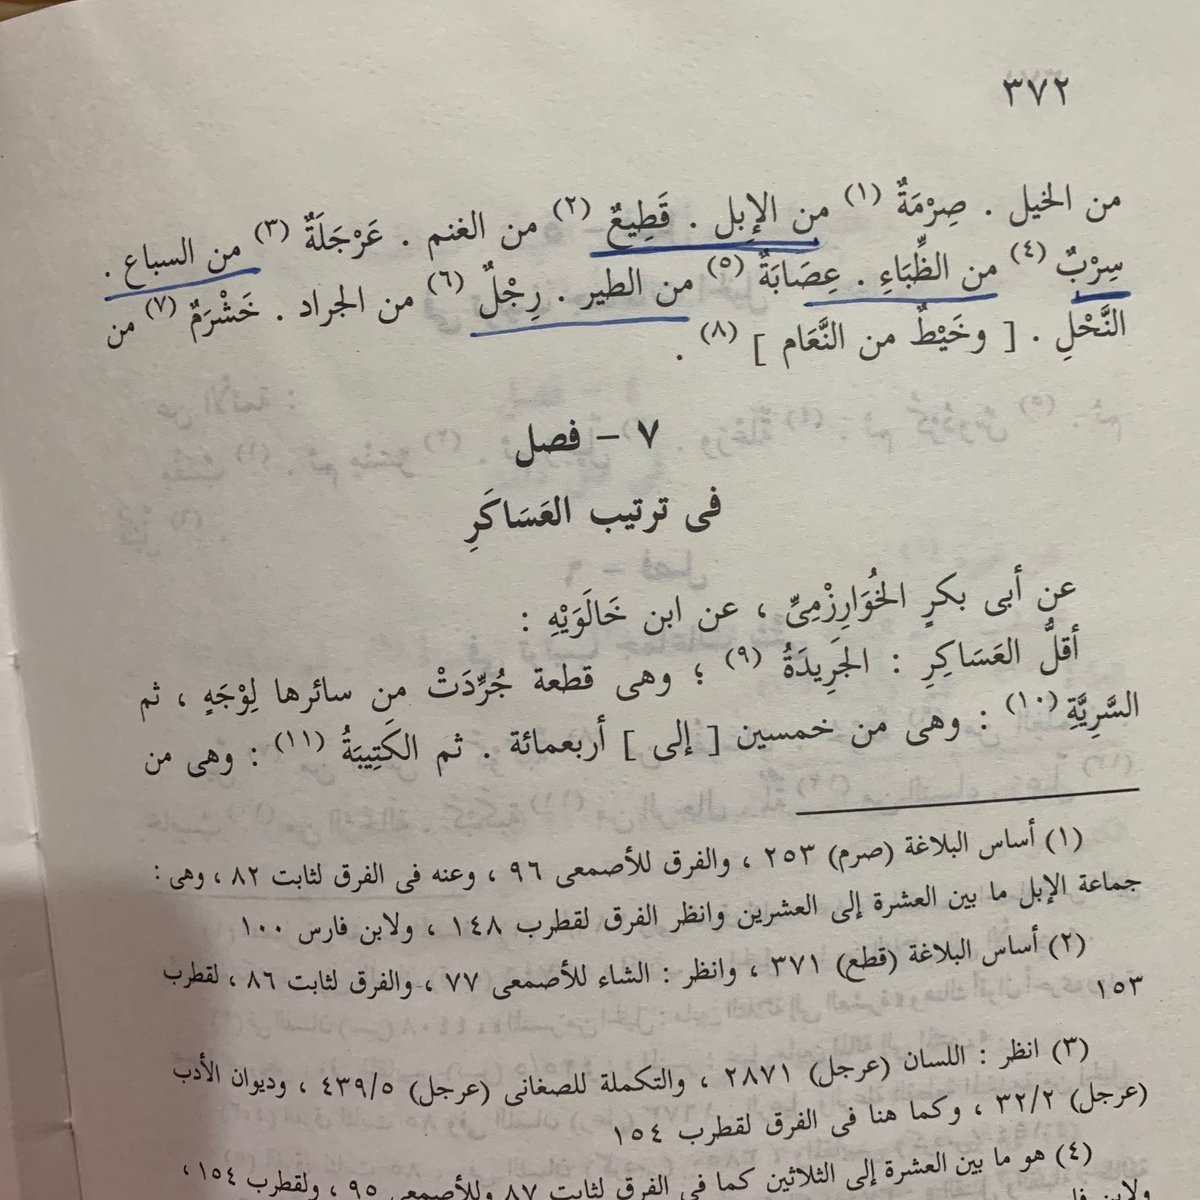 ٣٧٢
من الخيل . صِرْمَةٌ (١) من الإِبِل . قَطِيعٌ (٢) من الغنم . عَرْجَلَةٌ (٣) من السباع .
سِرْبٌ (٤) من الظِّبَاءِ . عِصَابَةٌ (٥) من الطير . رِجْلٌ (٦) من الجراد . خَشْرَمٌ (٧) من
النَّحْلِ . [ وخَيْطٌ من النَّعَام ] (٨) .
٧ – فصل
فى ترتيب العَسَاكَرِ
عن أبى بكرٍ الخُوَارِزْمِىِّ ، عن ابن خَالَوَيْهِ :
أقلُّ العَسَاكِرِ : الجَرِيدَةُ (٩) ؛ وهى قطعة جُرِّدَتْ من سائرها لِوْجَهٍ ، ثم
السَّرِيَّةِ (١٠) : وهى من خمسين [ إلى ] أربعمائة . ثم الكَتِيبَةُ (١١) : وهى من
(١) أساس البلاغة (صرم) ٢٥٣ ، والفرق للأصمعى ٩٦ ، وعنه فى الفرق لثابت ٨٢ ، وهى :
جماعة الإبل ما بين العشرة إلى العشرين وانظر الفرق لقطرب ١٤٨ ، ولابن فارس ١٠٠
(٢) أساس البلاغة (قطع) ٣٧١ ، وانظر : الشاء للأصمعى ٧٧ ، والفرق لثابت ٨٦ ، لقطرب
١٥٣
(٣) انظر : اللسان (عرجل) ٢٨٧١ ، والتكملة للصغانى (عرجل) ٤٣٩/٥ ، وديوان الأدب
(عرجل) ٣٢/٢ ، وكما هنا فى الفرق لقطرب ١٥٤
(٤) هو ما بين العشرة إلى الثلاثين كما فى الفرق لثابت ٨٧ وللأصمعى ٩٥ ، ولقطرب ١٥٤ ،